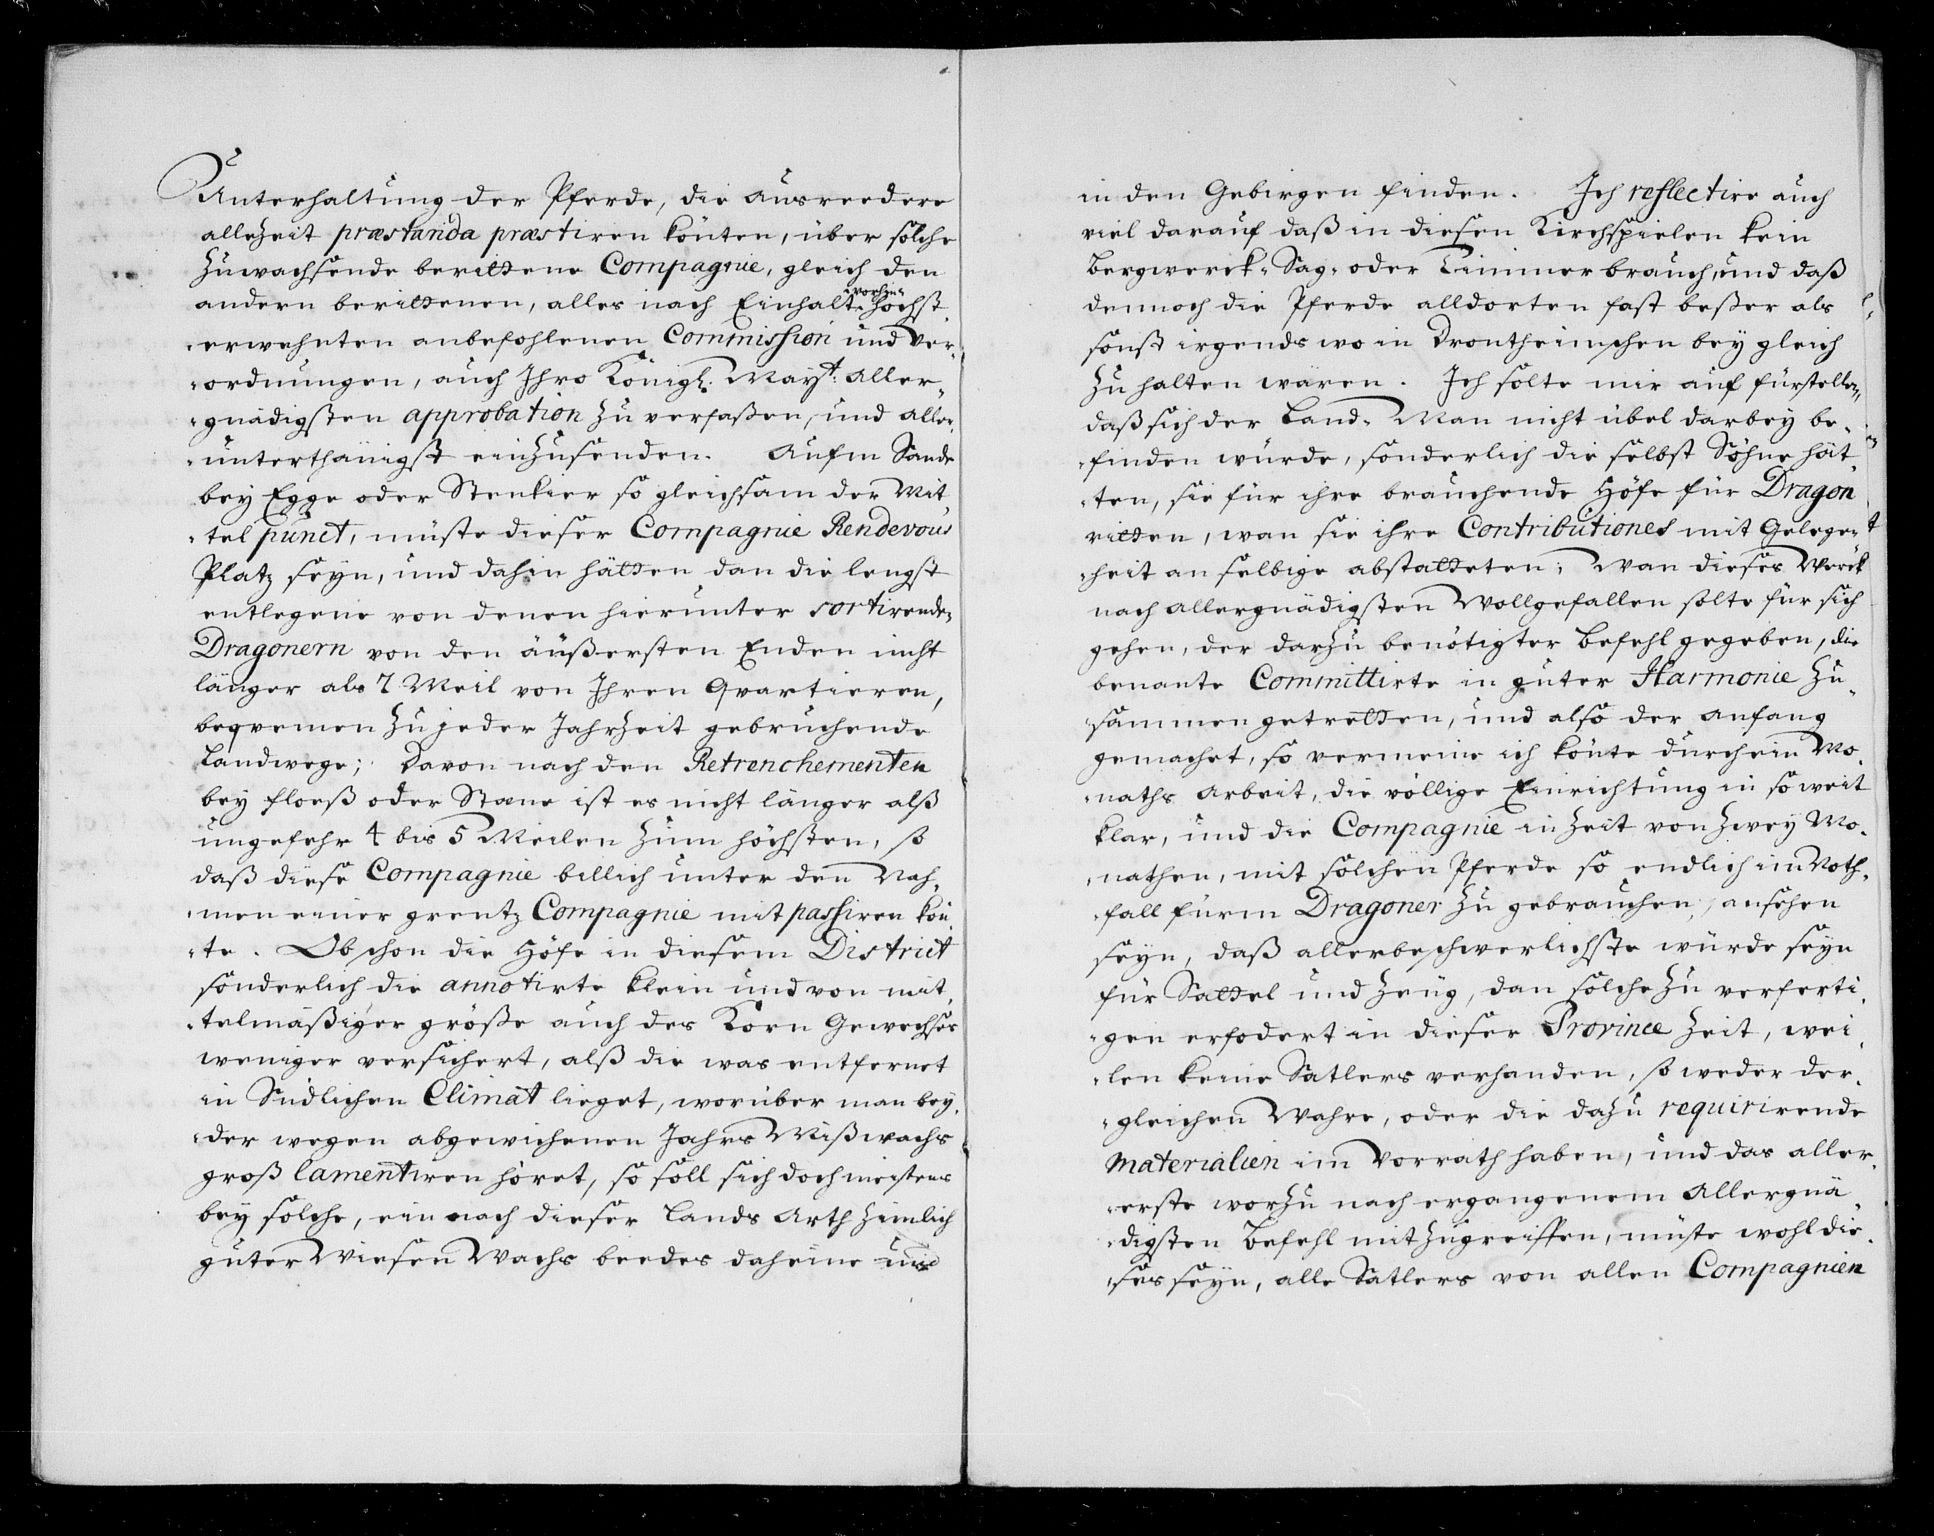 Unterhaltung der Pferde, die Ausreedere
allezeit præstanda præstiren könten, über solche
zuwachsende berittene Compagnie, gleich den
andern berittenen, alles nach Einhalt vorhin höchst
erwehnten anbefohlenen Commission und Ver-
ordnungen, auch Ihro Königl. Mayt. Aller-
gnädigsten approbation zu verfaßen, und aller-
unterthänigst einzusenden. Aufm Sande
bey Egge oder Stenkier so gleichsam der Mit
telpunct, müste dieser Compagnie Rendevous
Platz seyn, und dahin hätten dan die lengst
entlegene von denen hierunter sortirende
Dragonern von den äußersten Enden nicht
länger als 7 Meil von Ihren Qvartieren,
beqvemen zu jeder Jahrzeit gebruchende
Landwege; Davon nach den Retrenchementen
bey floeß oder Stæne ist es nicht länger alß
ungefehr 4 bis 5 Meilen zum höchsten, so
daß diese Compagnie billich unter den Nah-
men einer grentz Compagnie mit passiren kön
te. Obschon die Höfe in diesem District
sonderlich die annotirte klein und von mit
telmäßiger größe auch des Korn Gewechses
weniger versichert, alß die was entfernet
in Südlichen Climat lieget, worüber man bey-
der wegen abgewichenen Jahrs Mißwachs
groß lamentiren höret, so soll sich doch meistens
bey solche, ein nach dieser Lands Arth zimlich
guter Wiesen Wachs beedes daheime und
in den Gebirgen finden. Ich reflectire auch
viel darauf daß in diesen Kirchspielen kein
Bergwerck- Sag- oder Timmerbrauch, und daß
dennoch die Pferde alldorten fast beßer als
sonst irgends wo in Drontheimschen bey gleich
zu halten wären. Ich solte mir auf fürstellen,
daß sich der Land-Man nicht übel darbey be-
finden würde, sonderlich die selbst Söhne hät
ten, sie für ihre brauchende Höfe für Dragon
ritten, wan sie ihre Contributiones mit Gelegen
heit an selbige abstatteten; Wan dieses Werck
nach allergnädigsten Wollgefallen solte für sich
gehen, der darzu benötigter Befehl gegeben, die
benante Committirte in guter Harmonie zu-
sammen getretten, und also der Anfang
gemachet, so vermeine ich könte durch ein Mo-
naths Arbeit, die völlige Einrichtung in so weit
klar, und die Compagnie in Zeit von zwey Mo-
nathen, mit solchen Pferde so endlich im Noth-
fall fürm Dragoner zu gebrauchen, ansehen
seyn, daß allerbeschwerlichste würde seyn
für Sattel und Zeug, dan solche zu verferti-
gen erfodert in dieser Province Zeit, wei-
len keine Satlers verhanden, so weder der-
gleichen Wahre, oder die dazu requirirende
Materialien im Vorrath haben, und das aller-
erste worzu nach ergangenem Allergnä
digsten Befehl mit zugreiffen, müste wohl die-
ses seyn, alle Satlers von allen Compagnien